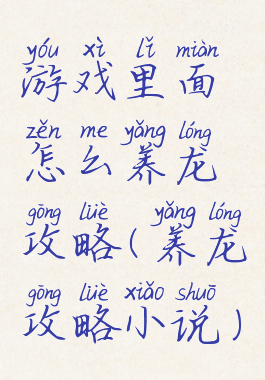 yóu xì lǐ miàn
游戏里面
zěn me yǎng lóng
怎么养龙
gōng lüè yǎng lóng
攻略(养龙
gōng lüè xiǎo shuō
攻略小说)